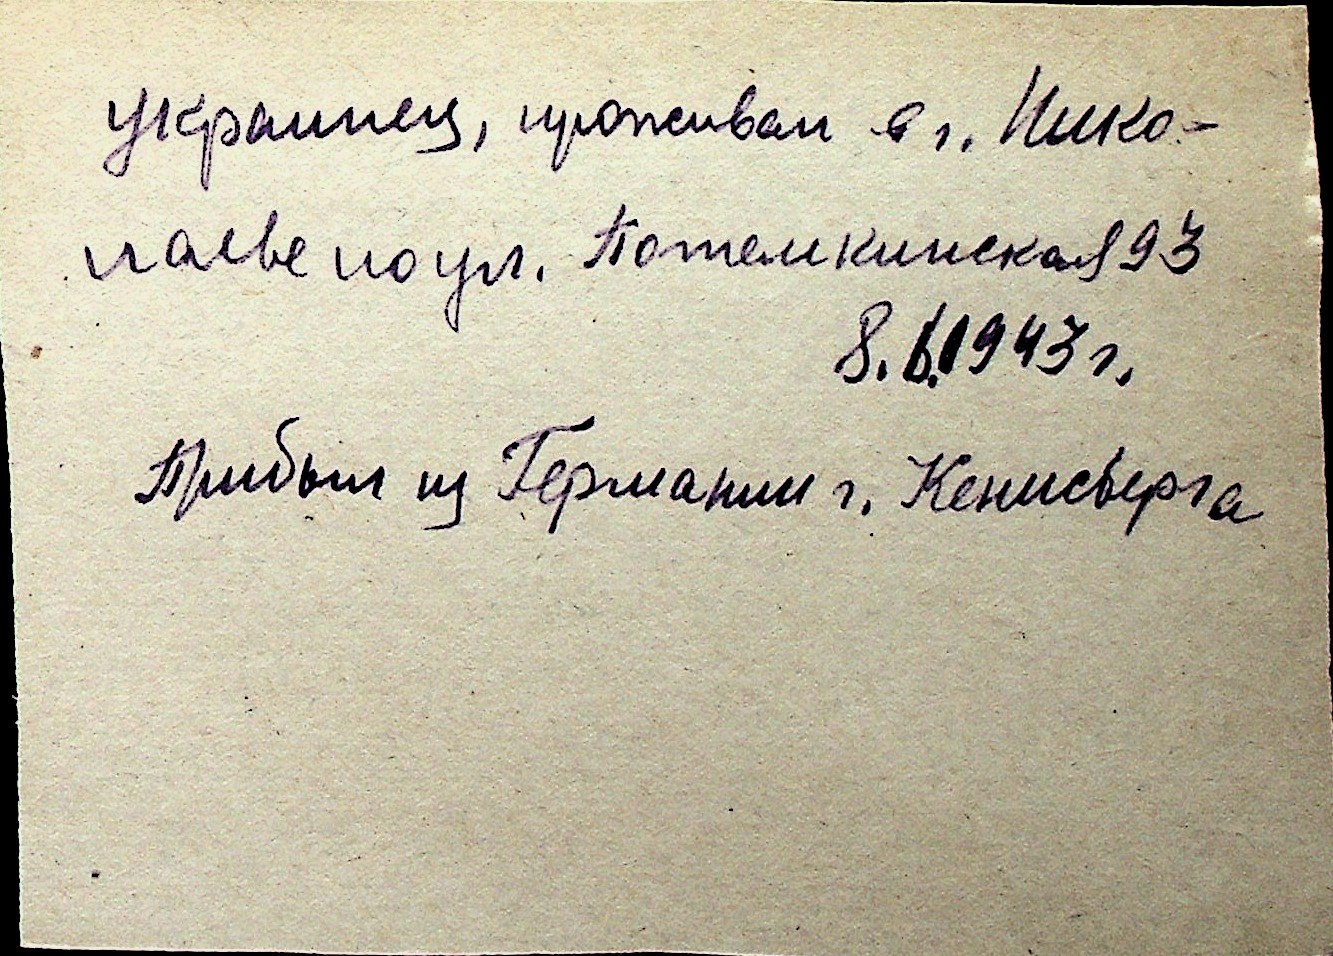 украинец, проживал в г. Нико-
лаеве по ул. Потемкинская 93
8.6.1943 г.
Прибыл из Германии г. Кенисберга